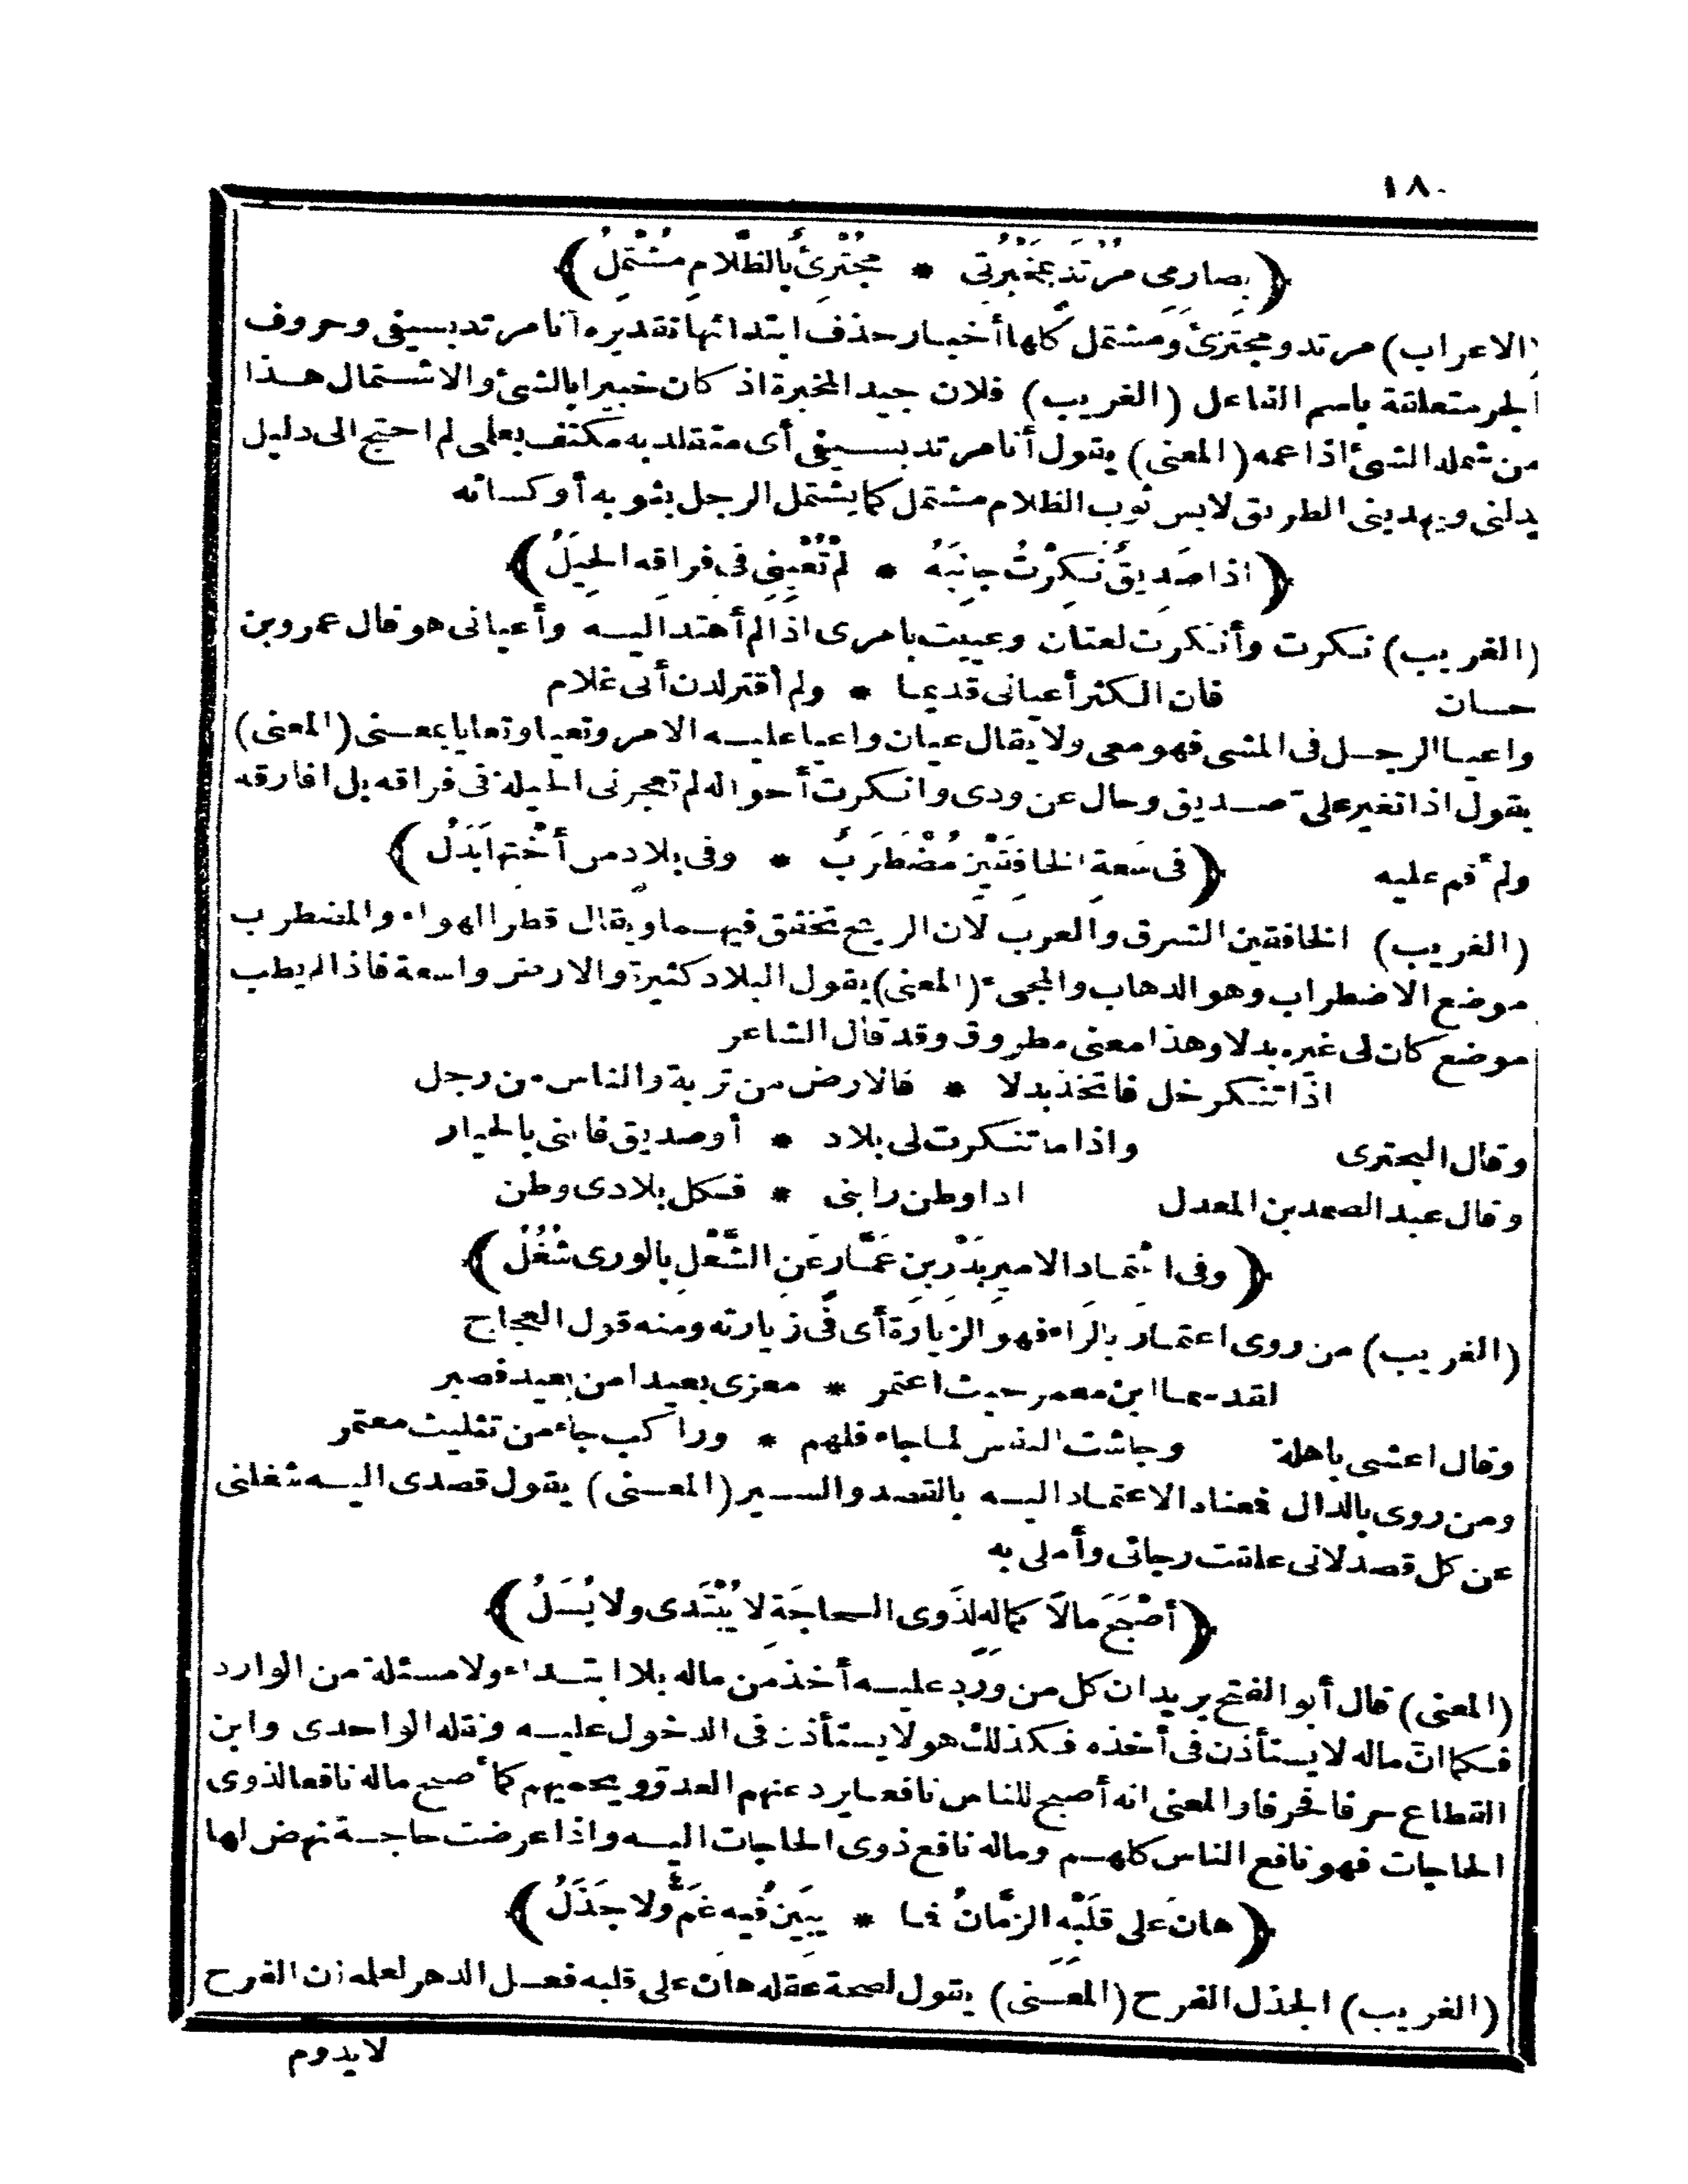 ١٨٠
﴿بصارمى مُرْتَدٍ بمَخْبُرَتى * مُجْتَزِئٌ بالظَّلامِ مُشْتَمِلُ﴾
(الاعراب) مرتد ومجتزئ ومشتمل كلها أخبار حذف ابتدائها تقديره أنا مرتد بسيفى وحروف
الجر متعلقة باسم الفاعل (الغريب) فلان جيد المخبرة اذ كان خبيرا بالشئ والاشتمال هذا
من شمله الشئ اذا عمه (المعنى) يقول أنا مرتد بسيفى أى متقلد به مكتف بعلمى لم احتج الى دليل
يدلنى ويهدينى الطريق لابس ثوب الظلام مشتمل كما يشتمل الرجل بثوبه أو كسائه
﴿اذا صَدِيقٌ نَكِرْتُ جانِبَهُ * لم تُعْيِنى فى فراقه الحِيَلُ﴾
(الغريب) نكرت وأنكرت لغتان وعييت بامرى اذا لم أهتد اليه وأعيانى هو قال عمرو بن
حسان فان الكثر أعيانى قديما * ولم أقتر لدن أنى غلام
واعيا الرجل فى المشى فهو معى ولا يقال عيان واعيا عليه الامر وتعيا وتعايا بمعنى (المعنى)
يقول اذا تغير على صديق وحال عن ودى وانكرت أحواله لم تعجزنى الحيلة فى فراقه بل افارقه
ولم أقم عليه ﴿فى سَعة الخافِقَيْنِ مُضْطَرَبٌ * وفى بلاد من أُخْتها بَدَلُ﴾
(الغريب) الخافقين الشرق والغرب لان الريح تخفق فيهما ويقال قطر الهواء والمضطرب
موضع الاضطراب وهو الذهاب والمجىء (المعنى) يقول البلاد كثيرة والارض واسعة فاذا لم يطب
موضع كان لى غيره بدلا وهذا معنى مطروق وقد قال الشاعر
اذا تنكر خل فاتخذ بدلا * فالارض من تربة والناس من رجل
وقال البحترى واذا ما تنكرت لى بلاد * أو صديق فاننى بالخيار
وقال عبد الصمد بن المعدل اذا وطن رابنى * فكل بلادى وطن
﴿وفى اعْتماد الامير بَدْرِ بنِ عَمَّارٍ عَنِ الشُّغْلِ بالورى شُغُلُ﴾
(الغريب) من روى اعتمار بالراء فهو الزيارة أى فى زيارته ومنه قول العجاج
لقد سما ابن معمر حيت اعتمر * معزى بعيدا من بعيد فصبر
وقال اعشى باهلة وجاشت النفس لما جاء فلهم * وراكب جاء من تثليث معتمر
ومن روى بالدال فعناه الاعتماد اليه بالقصد والسير (المعنى) يقول قصدى اليه شغلنى
عن كل قصد لانى علقت رجائى وأملى به
﴿أصْبَحَ مالًا كماله لذَوى الـحاجَةِ لا يُبْتَدى ولا يُسَلُ﴾
(المعنى) قال أبو الفتح يريد ان كل من ورد عليه أخذ من ماله بلا ابتداء ولا مسئلة من الوارد
فكما ان ماله لا يستأذن فى أخذه فكذلك هو لا يستأذن فى الدخول عليه ونقله الواحدى وابن
القطاع حرفا فحرفا والمعنى انه أصبح للناس نافعا يرد عنهم العدو ويحميهم كما أصبح ماله نافعا لذوى
الحاجات فهو نافع الناس كلهم وماله نافع ذوى الحاجات اليه واذا عرضت حاجة نهض لها
﴿هانَ على قَلْبِه الزَّمانُ فما * يبِين فيه غَمٌّ ولا جَذَلُ﴾
(الغريب) الجذل الفرح (المعنى) يقول لصحة عقله هان على قلبه فعل الدهر لعله ان الفرح
لايدوم